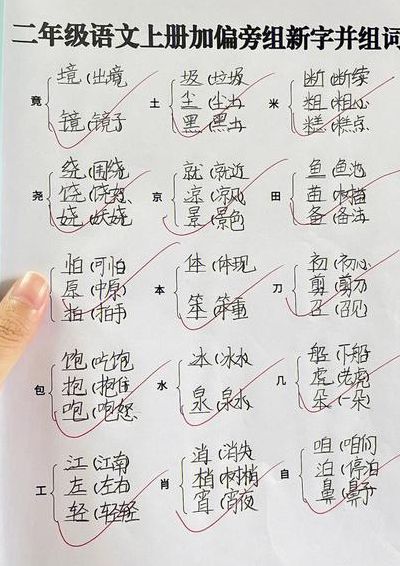 二年级语文上册加偏旁组新字并组词
竟
境(出境
镜(镜子
土
圾(垃圾
尘(尘土
黑(黑土
米
断(断续
粗(粗心
糕(糕点
尧
绕(围绕
饶(饶恕
娆(妖娆
京
就(就近
凉(凉风
景(景色
田
鱼(鱼池
苗(树苗
备(备注
怕(可怕
原(中原)
拍(拍手
本
体(体现
笨(笨重
刀
初(初心
剪(剪刀
召(召见
包
饱(吃饱
抱(抱住
咆(咆怒
水
冰(冰水
泉(泉水
几
船(下船
虎(老虎
朵(一朵
工
江(江南
左(左右
轻(轻轻
肖
消(消失
梢(树梢
宵(宵夜
自
咱(咱们
泊(停泊
鼻(鼻子